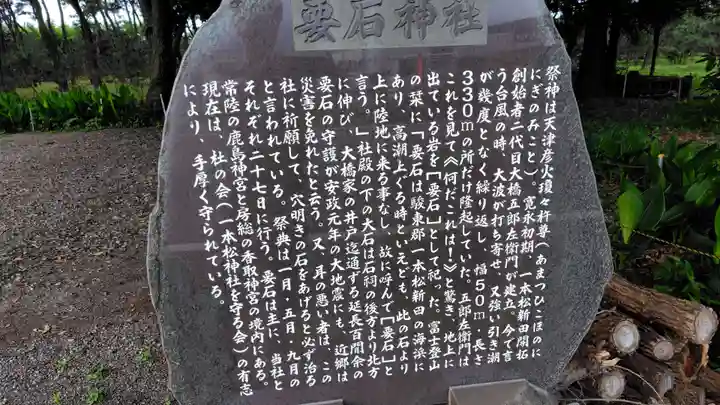 要石神社
祭神は天津彦火瓊々杵尊(あまつひこほのに
にぎのみこと)。寛永初期、一本松新田開拓
創始者二代目大橋五郎左衛門が建立。今で言
う台風の時、大波が打ち寄せ、又強い引き潮
が幾度となく繰り返し、幅50m・長さ
330mの所だけ隆起していた。五郎左衛門は
これを見て《何だこれは!》と驚き、地上に
出ている岩を[要石]として祀った。富士登山
の栞に「要石は駿東郡一本松新田の海浜に
あり、高潮上ぐる時といえども、此の石より
上に陸地に来る事なし、故に呼んで[要石]と
言う。」社殿の下の大石は石祠の後方より北方
に伸び、大橋家の井戸迄通ずる延長百間余の
要石の守護が安政元年の大地震にも、近郷は
災害を免れたと云う。又、耳の悪い者は、この
社に祈願して、穴明きの石をあげると必ず治る
と言われている。祭典は一月・五月・九月の
それぞれ二十七日に行う。要石は主に、当社と
常陸の鹿島神宮と房総の香取神宮の境内にある。
現在は、杜の会(一本松神社を守る会)の有志
により、手厚く守られている。